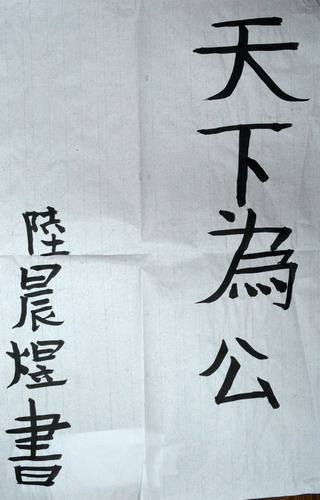 天下為公
陸晨煜書